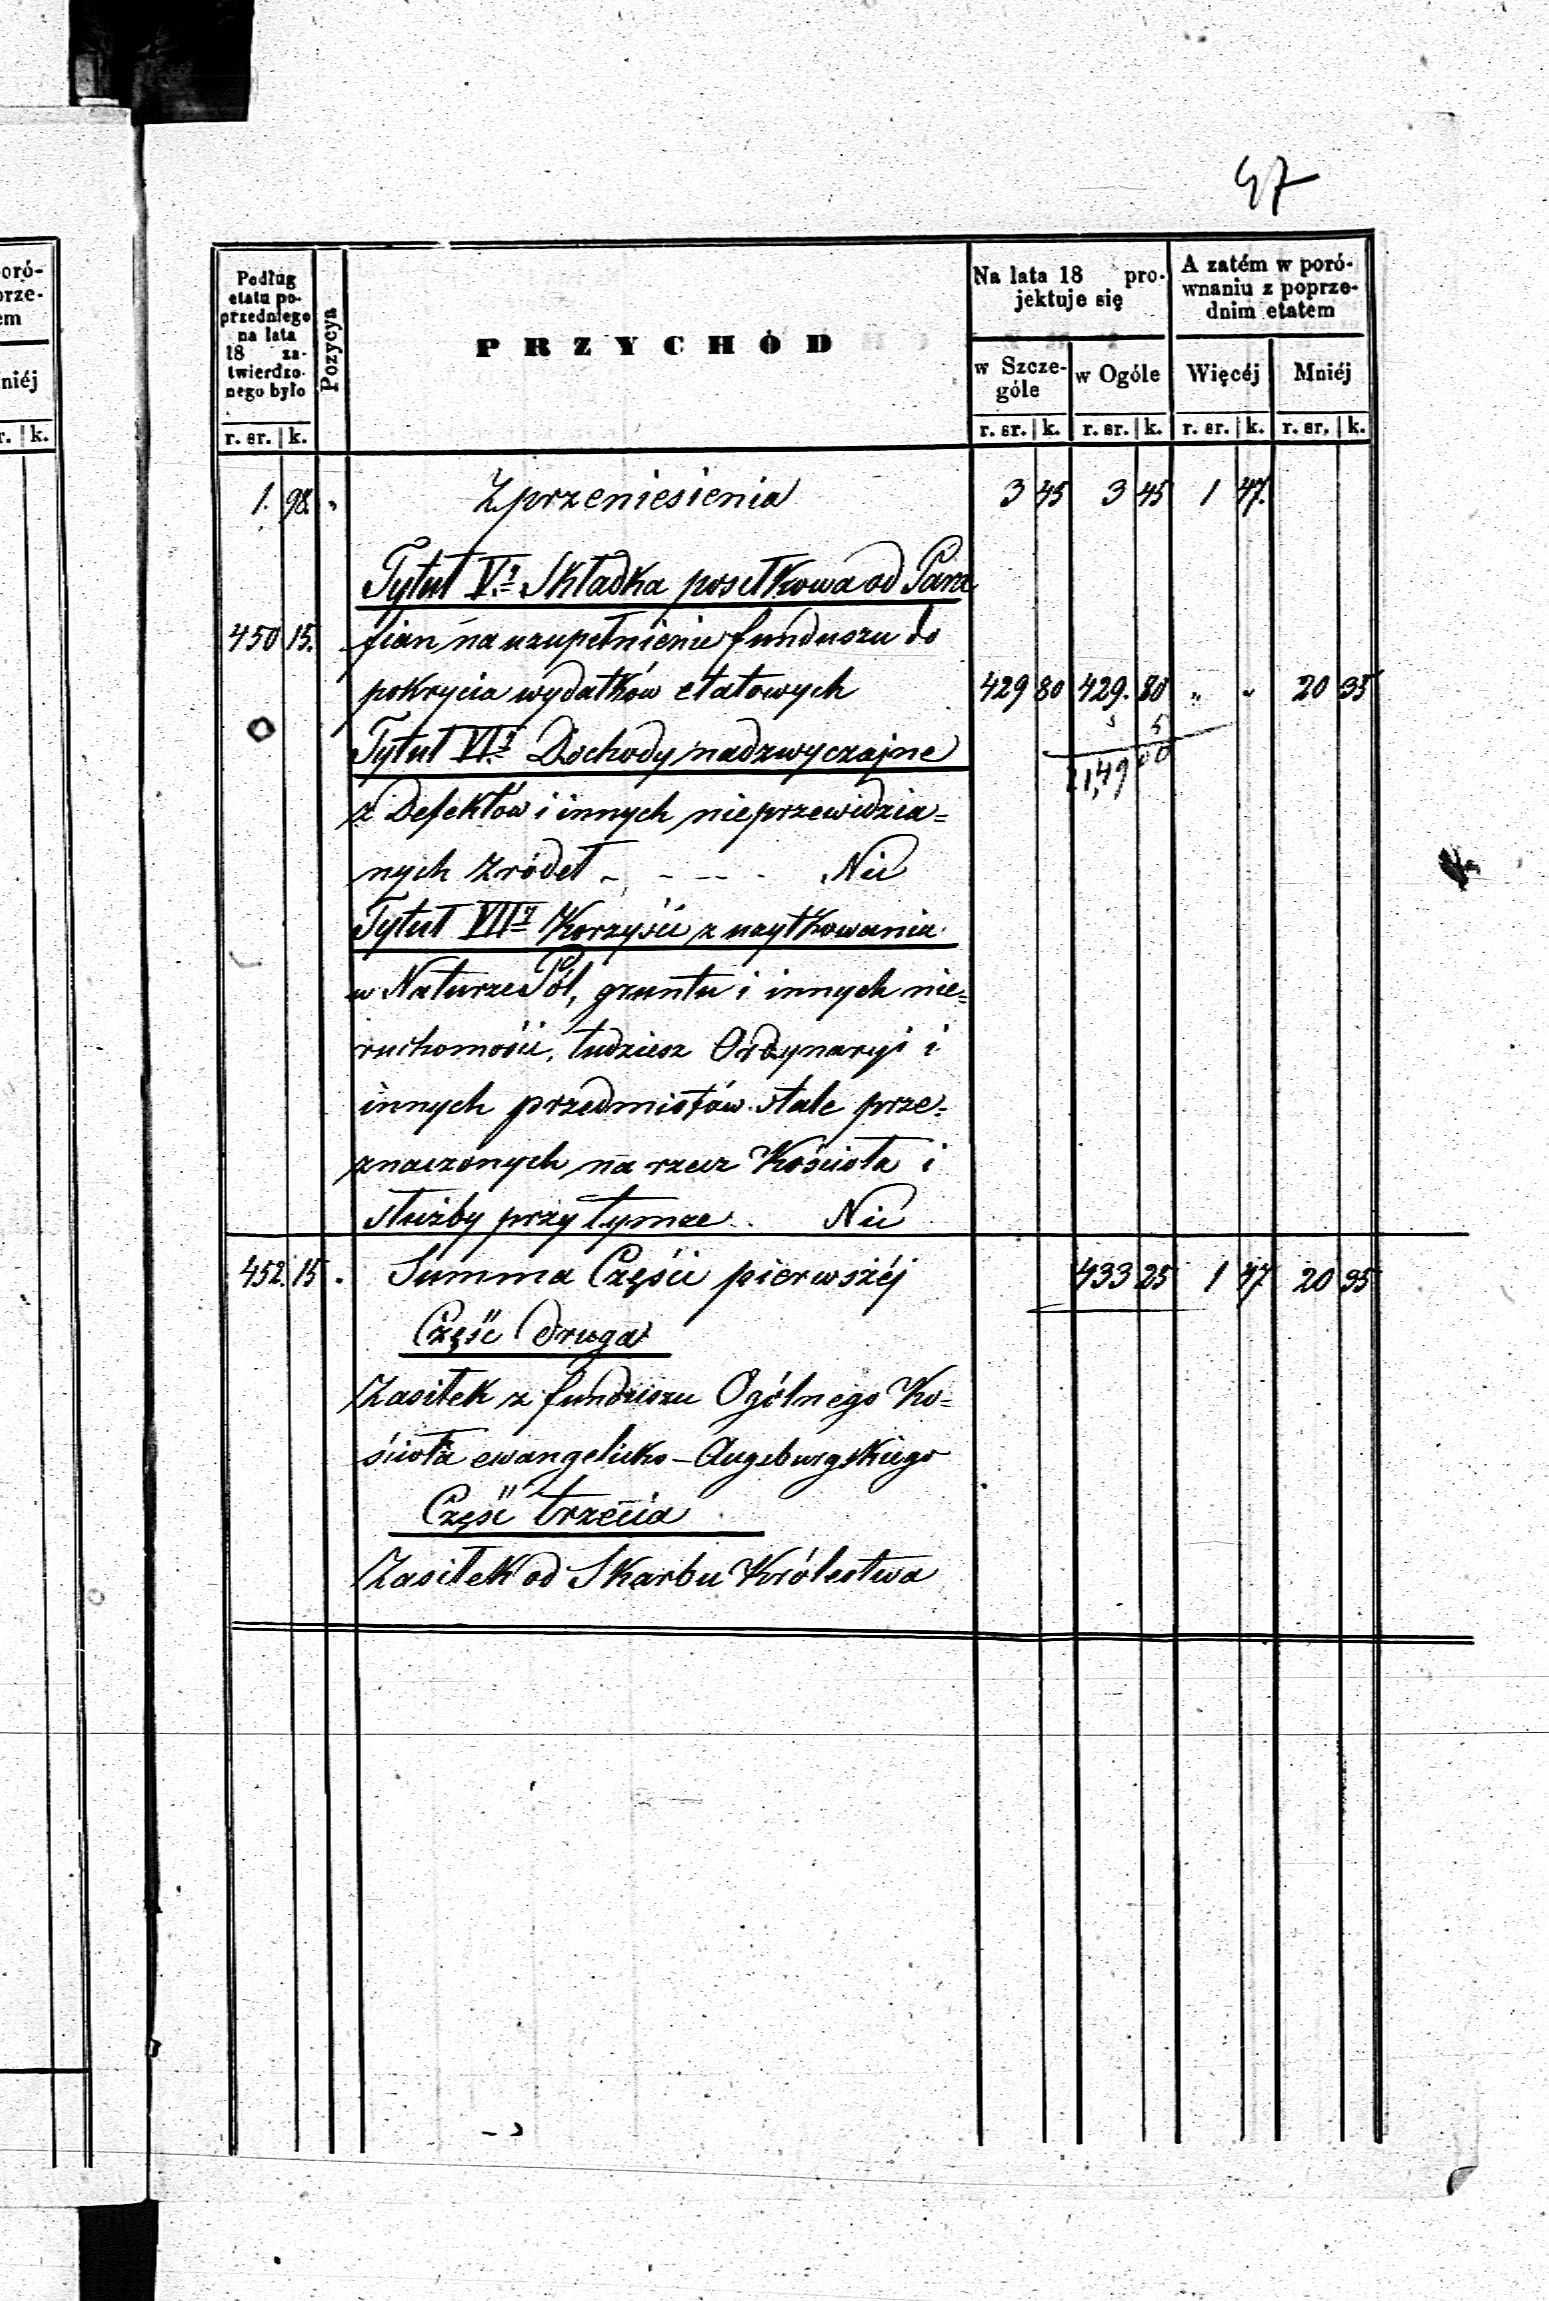 47
oró-
orze-
em
niéj
r. k.
Podług etatu poprzedniego na lata 18 zatwierdzonego było
Pozycya
PRZYCHÓD
Na lata 18 projektuje się
A zatém w porównaniu z poprzednim etatem
w Szczególe w Ogóle Więcéj Mniéj
r. sr. k. r. sr. k. r. sr. k. r. sr. k. r. sr. k.
1. 98. " Z przeniesienia 3 45 3 45 1 47.
Tytuł V.y Składka posełkowa od Para
450 15. fian na uzupełnienie funduszu do
pokrycia wydatków etatowych 429 80 429. 80 " " 20 35
Tytuł VI.y Dochody nadzwyczajne
z Defektów i innych nieprzewidzia=
nych źródeł - - - - Nic
Tytuł VIIy Korzyści z użytkowania
w Naturze Pól, gruntu i innych nie=
ruchomości, tudziesz Ordynaryi i
innych przedmiotów stale prze=
znaczonych na rzecz Kościoła i
służby przy tymze . Nic
452. 15 . Summa Części pierwszéj 433 25 1 47 20 35
Część druga
Zasiłek z funduszu Ogólnego Ko=
ścioła ewangelicko-Augsburgskiego
Część trzecia
Zasiłek od Skarbu Królestwa